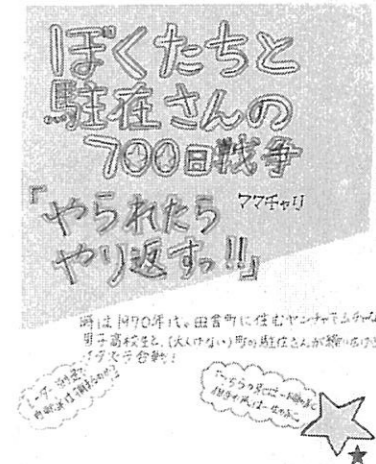 ぼくたちと
駐在さんの
700日戦争
ママチャリ
『やられたら
やり返すっ!!』
時は1970年代。田舎町に住むヤンチャでムチャな
男子高校生と、(大人げない)町の駐在さんが繰り広げる
イタズラ合戦!